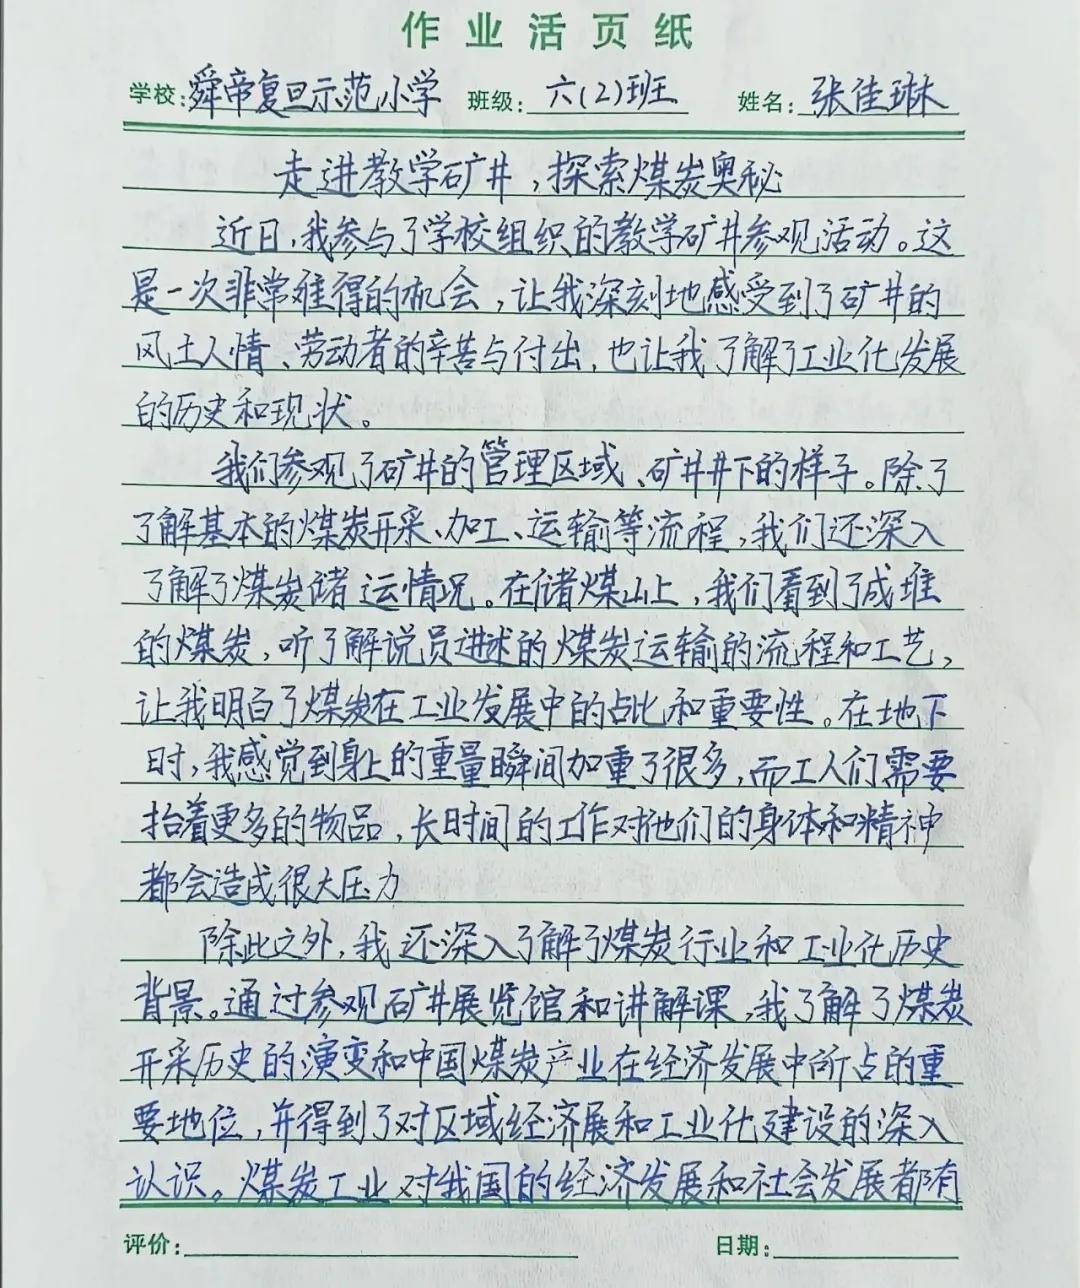 作业活页纸
学校:舜帝复旦示范小学 班级:六(2)班 姓名:张佳琳
走进教学矿井,探索煤炭奥秘
近日,我参与了学校组织的教学矿井参观活动。这
是一次非常难得的机会,让我深刻地感受到了矿井的
风土人情、劳动者的辛苦与付出,也让我了解了工业化发展
的历史和现状。
我们参观了矿井的管理区域、矿井井下的样子。除了
了解基本的煤炭开采、加工、运输等流程,我们还深入
了解了煤炭储运情况。在储煤山上,我们看到了成堆
的煤炭,听了解说员讲述的煤炭运输的流程和工艺,
让我明白了煤炭在工业发展中的占比和重要性。在地下
时,我感觉到身上的重量瞬间加重了很多,而工人们需要
抬着更多的物品,长时间的工作对他们的身体和精神
都会造成很大压力
除此之外,我还深入了解了煤炭行业和工业化历史
背景。通过参观矿井展览馆和讲解课,我了解了煤炭
开采历史的演变和中国煤炭产业在经济发展中所占的重
要地位,并得到了对区域经济展和工业化建设的深入
认识。煤炭工业对我国的经济发展和社会发展都有
评价: 日期: